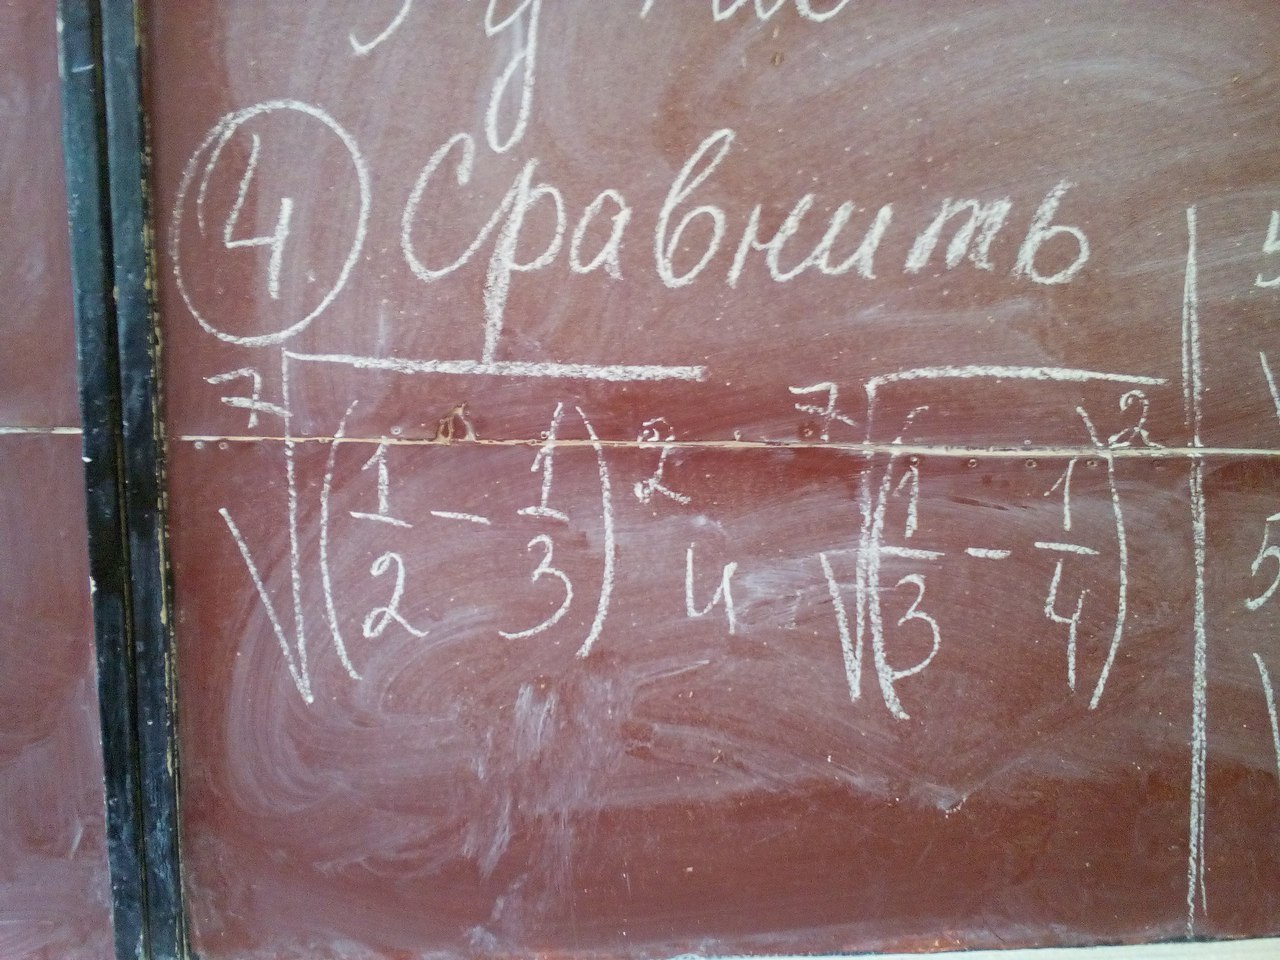 4 Сравнить
⁷√(1/2 - 1/3)² и ⁷√(1/3 - 1/4)²